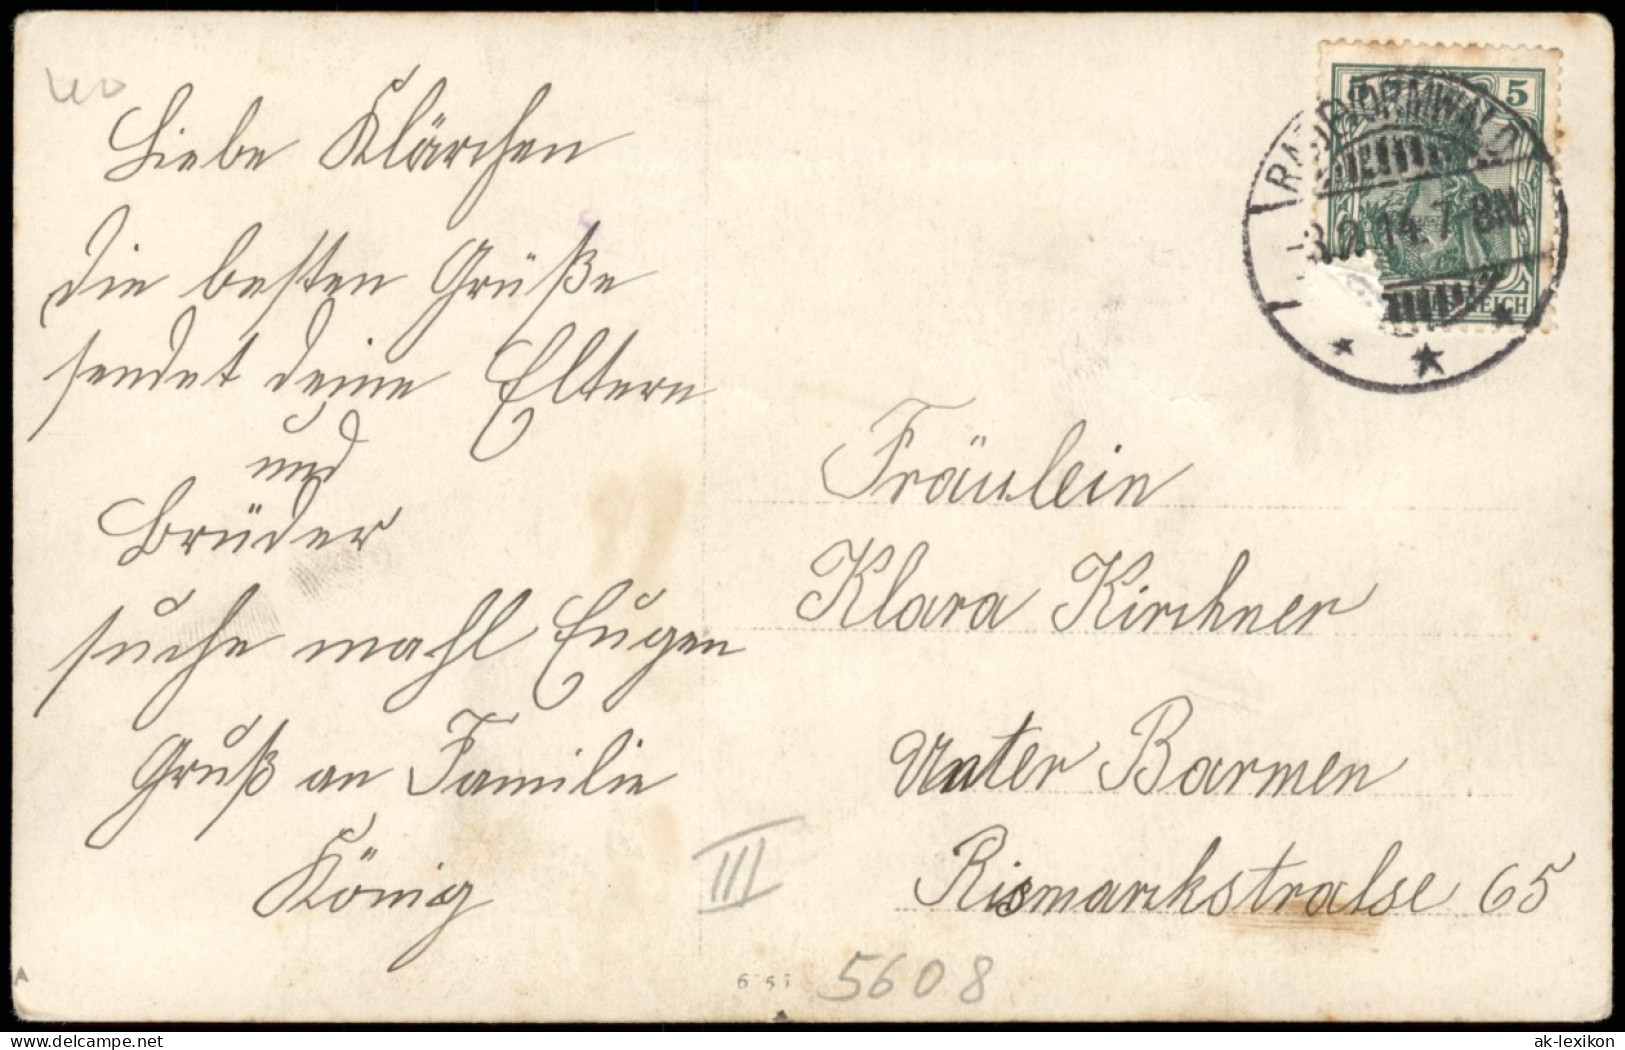 Liebe Klärchen
die besten Grüße
sendet deine Eltern
und
Brüder
suche mahl Eugen
Gruß an Familie
König
5
RADEVORMWALD
14.7-8N.
REICH
Fräulein
Klara Kirchner
Unter Barmen
Bismarkstralse 65
III
5608
ak-lexikon
delcampe.net